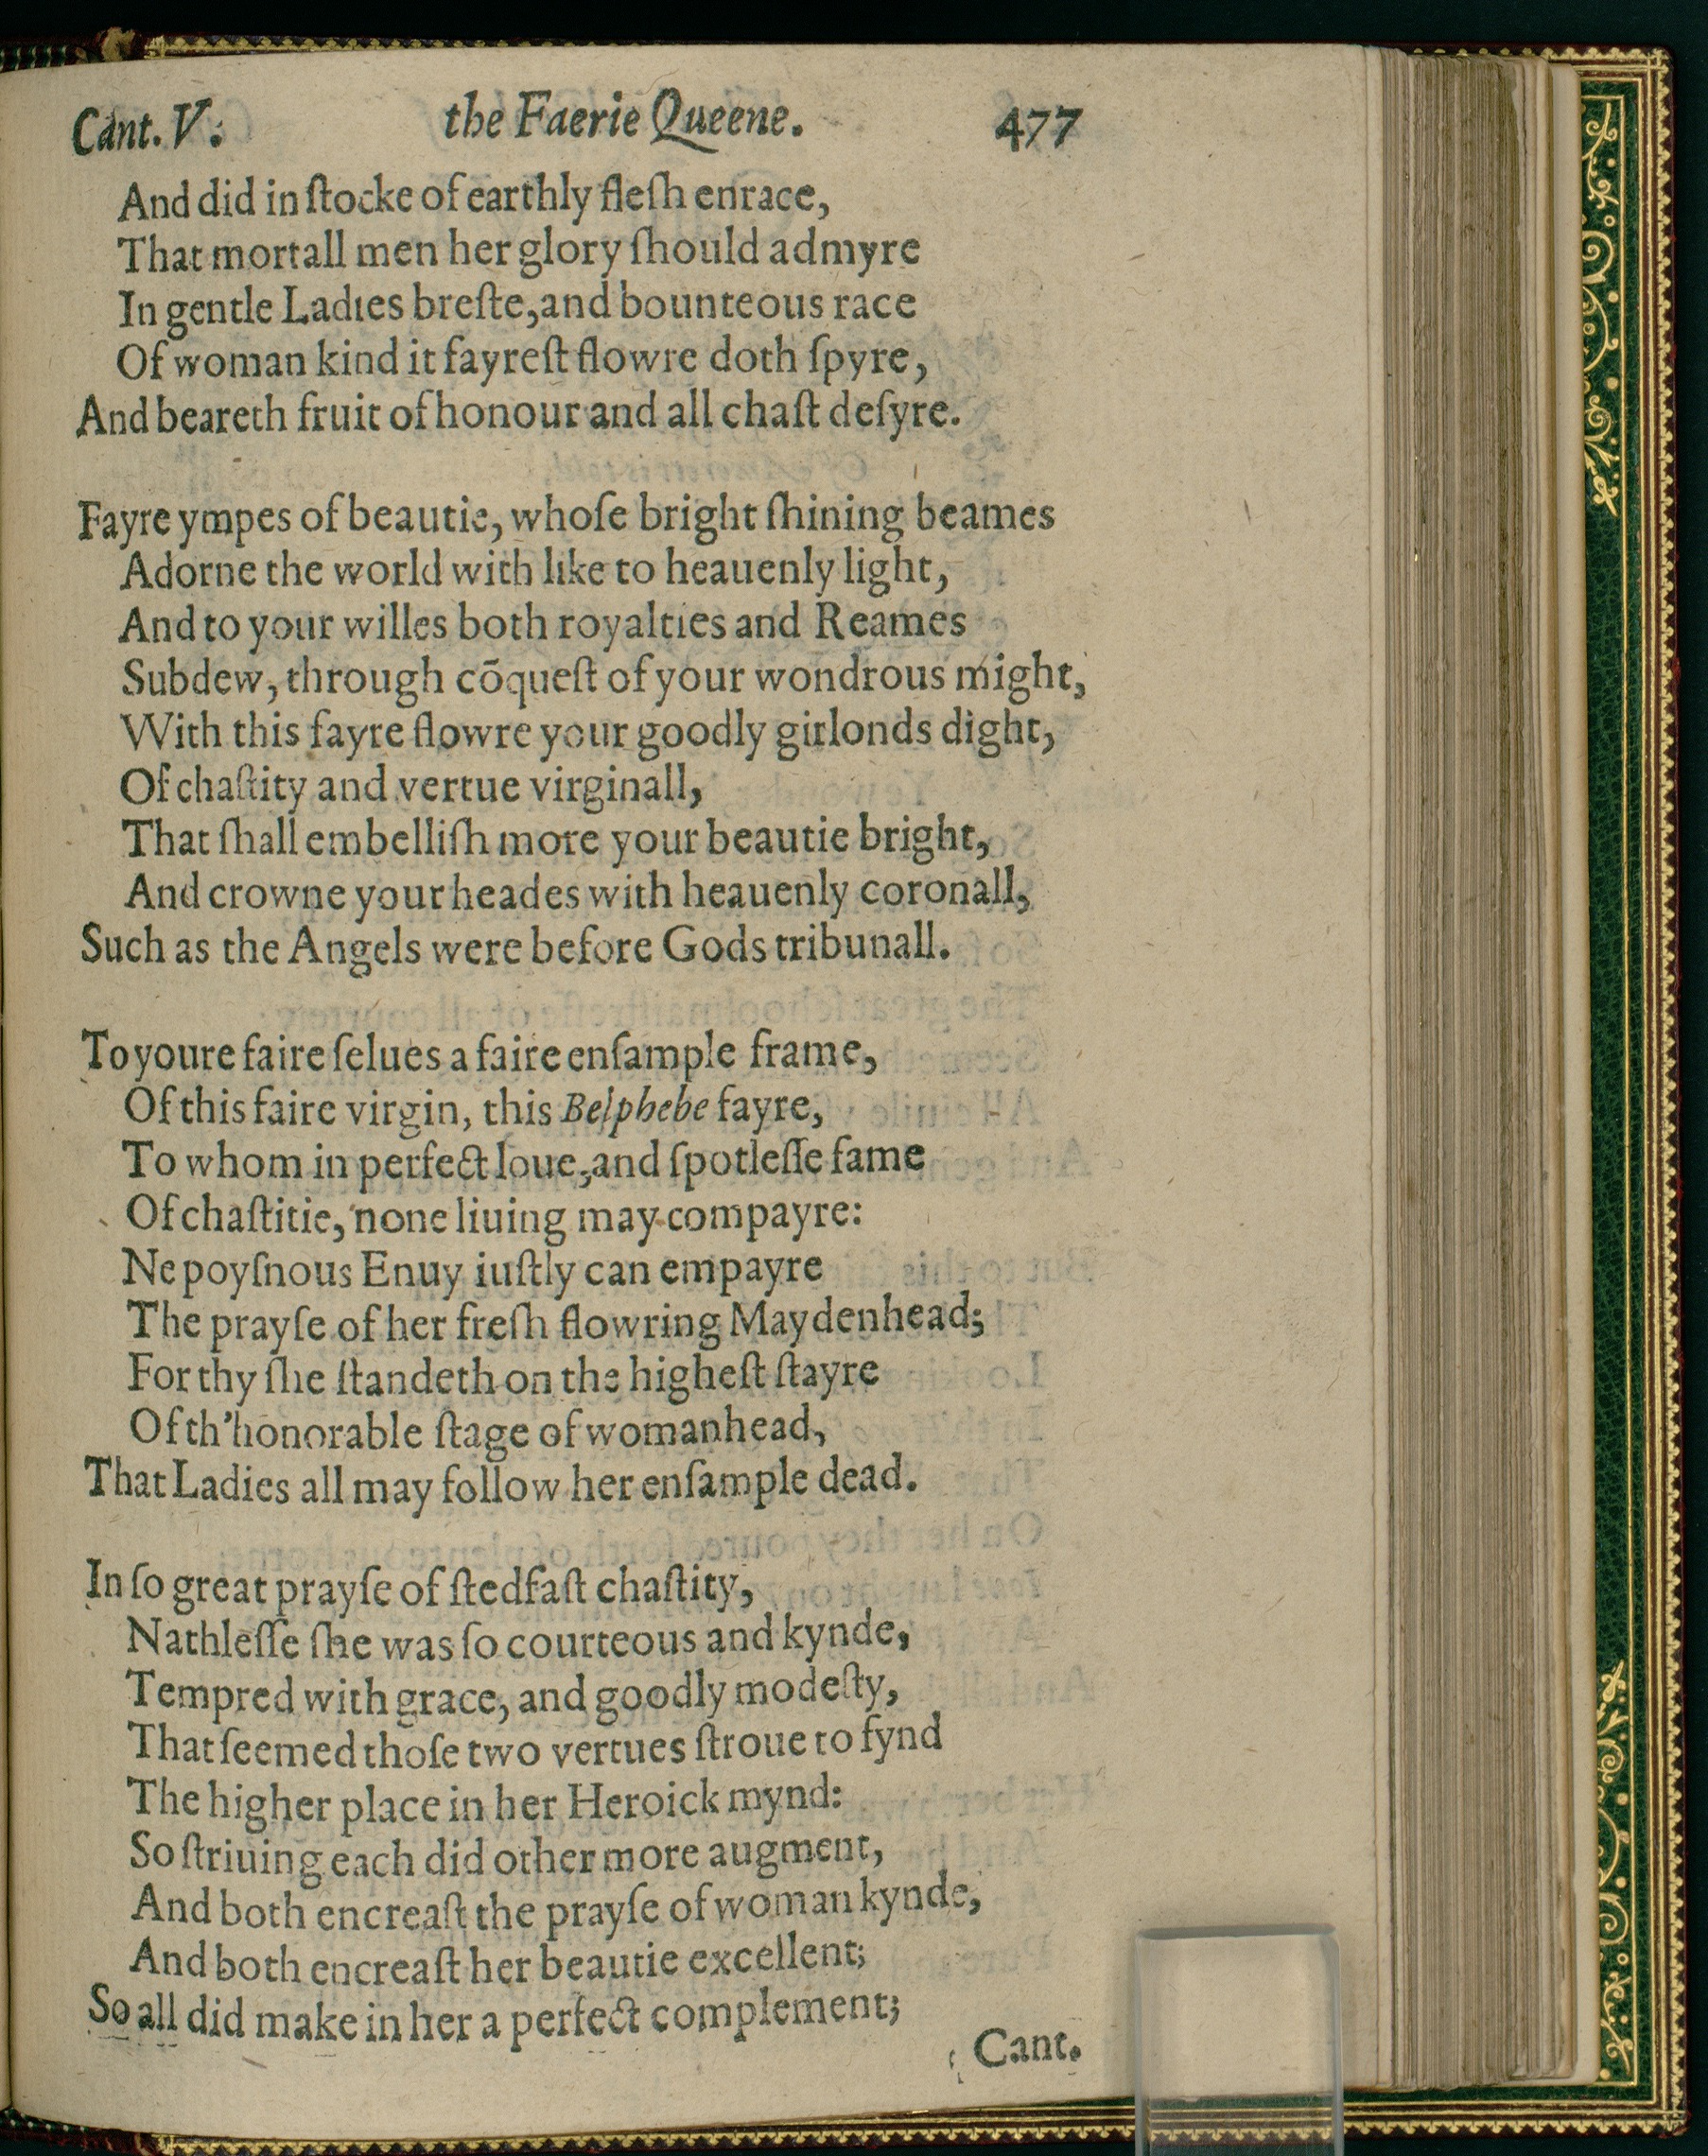 Cant. V. the Faerie Queene. 477
And did in ſtocke of earthly fleſh enrace,
That mortall men her glory ſhould admyre
In gentle Ladies breſte, and bounteous race
Of woman kind it fayreſt flowre doth ſpyre,
And beareth fruit of honour and all chaſt deſyre.
Fayre ympes of beautie, whoſe bright ſhining beames
Adorne the world with like to heauenly light,
And to your willes both royalties and Reames
Subdew, through cõqueſt of your wondrous might,
With this fayre flowre your goodly girlonds dight,
Of chaſtity and vertue virginall,
That ſhall embelliſh more your beautie bright,
And crowne your heades with heauenly coronall,
Such as the Angels were before Gods tribunall.
To youre faire ſelues a faire enſample frame,
Of this faire virgin, this Belphebe fayre,
To whom in perfect loue, and ſpotleſſe fame
Of chaſtitie, none liuing may compayre:
Ne poyſnous Enuy iuſtly can empayre
The prayſe of her freſh flowring Maydenhead;
For thy ſhe ſtandeth on the higheſt ſtayre
Of th'honorable ſtage of womanhead,
That Ladies all may follow her enſample dead.
In ſo great prayſe of ſtedfaſt chaſtity,
Nathleſſe ſhe was ſo courteous and kynde,
Tempred with grace, and goodly modeſty,
That ſeemed thoſe two vertues ſtroue to fynd
The higher place in her Heroick mynd:
So ſtriuing each did other more augment,
And both encreaſt the prayſe of woman kynde,
And both encreaſt her beautie excellent;
So all did make in her a perfect complement;
Cant.